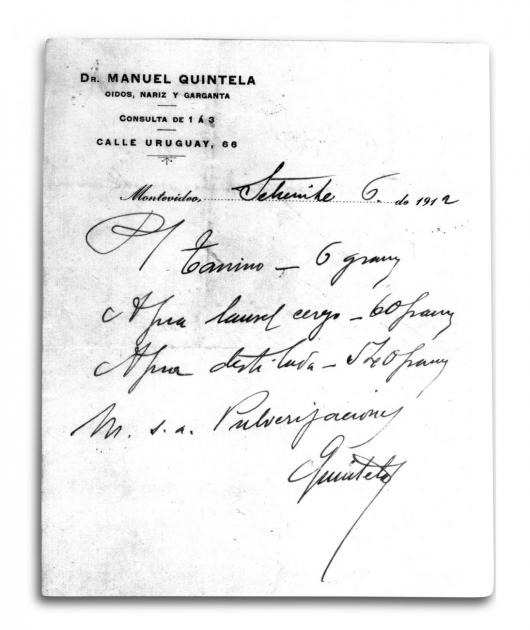 Dr. MANUEL QUINTELA
OIDOS, NARIZ Y GARGANTA
CONSULTA DE 1 Á 3
CALLE URUGUAY, 66
Montevideo, Setiembre 6. de 1912
R/ Tanino — 6 grams
Agua laurel cerezo — 60 grams
Agua destilada — 540 grams
M. s. a. Pulverizaciones
Quintela